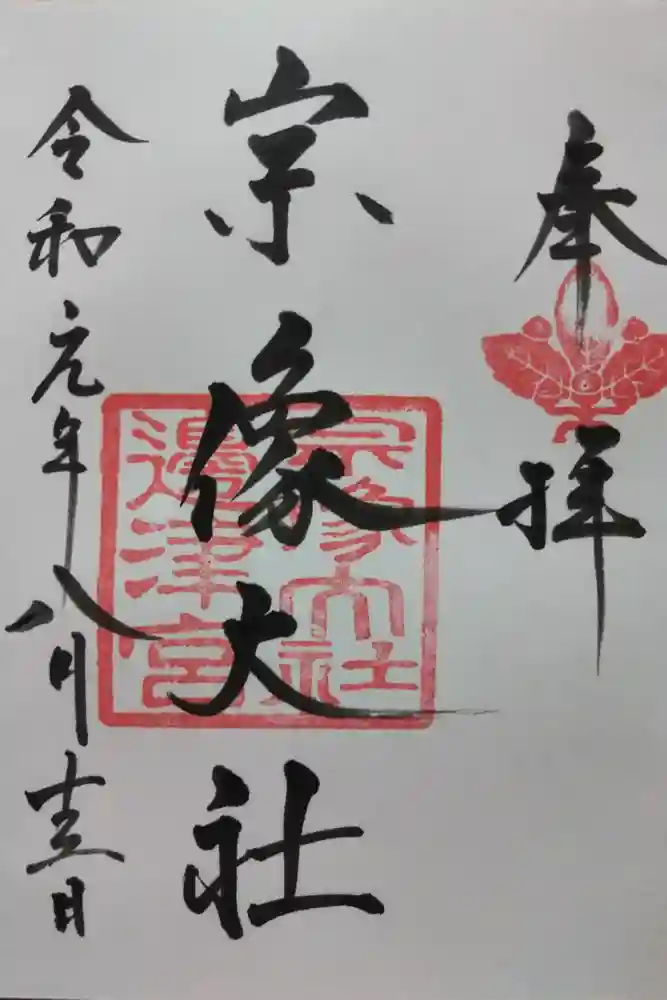 奉拝
宗像大社
宗像大社
邊津宮
令和元年八月十五日